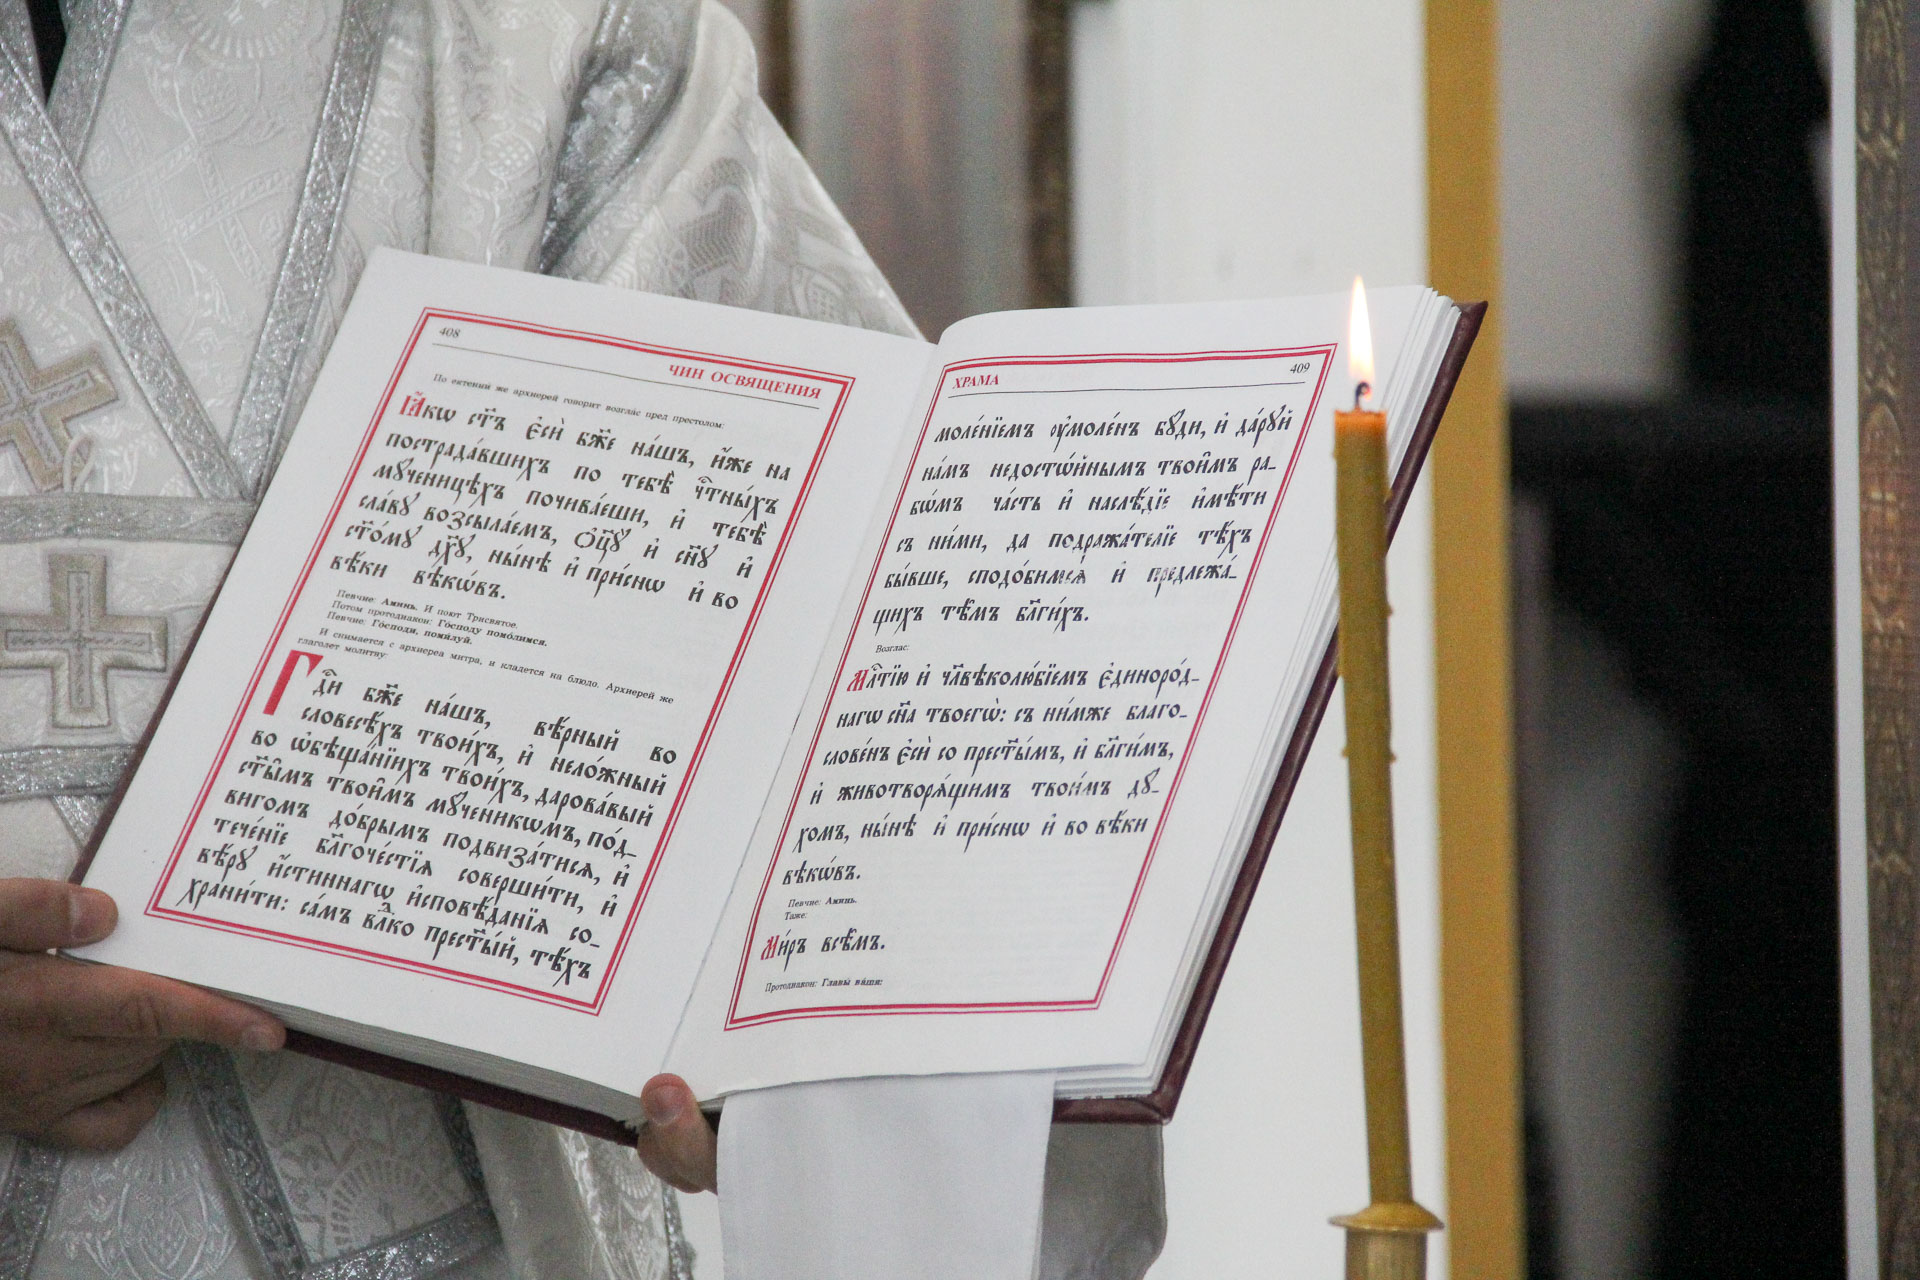 408
ЧИН ОСВЯЩЕНИЯ
По ектении же архиерей говорит возгла́с пред престолом:
Ꙗ҆́кѡ ст҃ъ є҆сѝ бж҃е на́шъ, и҆́же на
пострада́вшихъ по тебѣ̀ чⷭ҇тны́хъ
мꙋченицѣ́хъ почива́еши, и҆ тебѣ̀
сла́вꙋ возсыла́емъ, Ѻ҆ц҃ꙋ̀ и҆ сн҃ꙋ и҆
ст҃о́мꙋ дх҃ꙋ, ны́нѣ и҆ при́снѡ и҆ во
вѣ́ки вѣкѡ́въ.
Певчие: Аминь. И поют Трисвятое.
Потом протодиакон: Го́споду помо́лимся.
Певчие: Го́споди, поми́луй.
И снимается с архиереа митра, и кладется на блюдо. Архиерей же
глаголет молитву:
Гдⷭ҇и бж҃е на́шъ, вѣ́рный во
словесѣ́хъ твои́хъ, и҆ нело́жный
во ѡ҆бѣща́нїихъ твои́хъ, дарова́вый
ст҃ы̑мъ твои̑мъ мꙋ́ченикѡмъ, по́д_
вигомъ до́брымъ подвиза́тисѧ, и҆
тече́нїе бл҃гоче́стїѧ соверши́ти, и҆
вѣ́рꙋ и҆́стиннагѡ и҆сповѣ́данїѧ со_
храни́ти: са́мъ влⷣко прест҃ы́й, тѣ́хъ
ХРАМА
409
моле́нїемъ ᲂу҆моле́нъ бꙋ́ди, и҆ да́рꙋй
на́мъ недостѡ́йнымъ твои̑мъ ра_
бѡ́мъ ча́сть и҆ наслѣ́дїе и҆мѣ́ти
съ ни́ми, да подража́телїе тѣ́хъ
бы́вше, сподо́бимсѧ и҆ предлежа́_
щихъ тѣ̑мъ бл҃ги́хъ.
Возглас:
Млⷭ҇тїю и҆ чл҃вѣколю́бїемъ є҆диноро́д_
нагѡ сн҃а твоегѡ̀: съ ни́мже благо_
слове́нъ є҆сѝ со прест҃ы́мъ, и҆ бл҃ги́мъ,
и҆ животворѧ́щимъ твои́мъ дꙋ́_
хомъ, ны́нѣ и҆ при́снѡ и҆ во вѣ́ки
вѣкѡ́въ.
Певчие: Аминь.
Таже:
Ми́ръ всѣ̑мъ.
Протодиакон: Главы́ ва́ша: